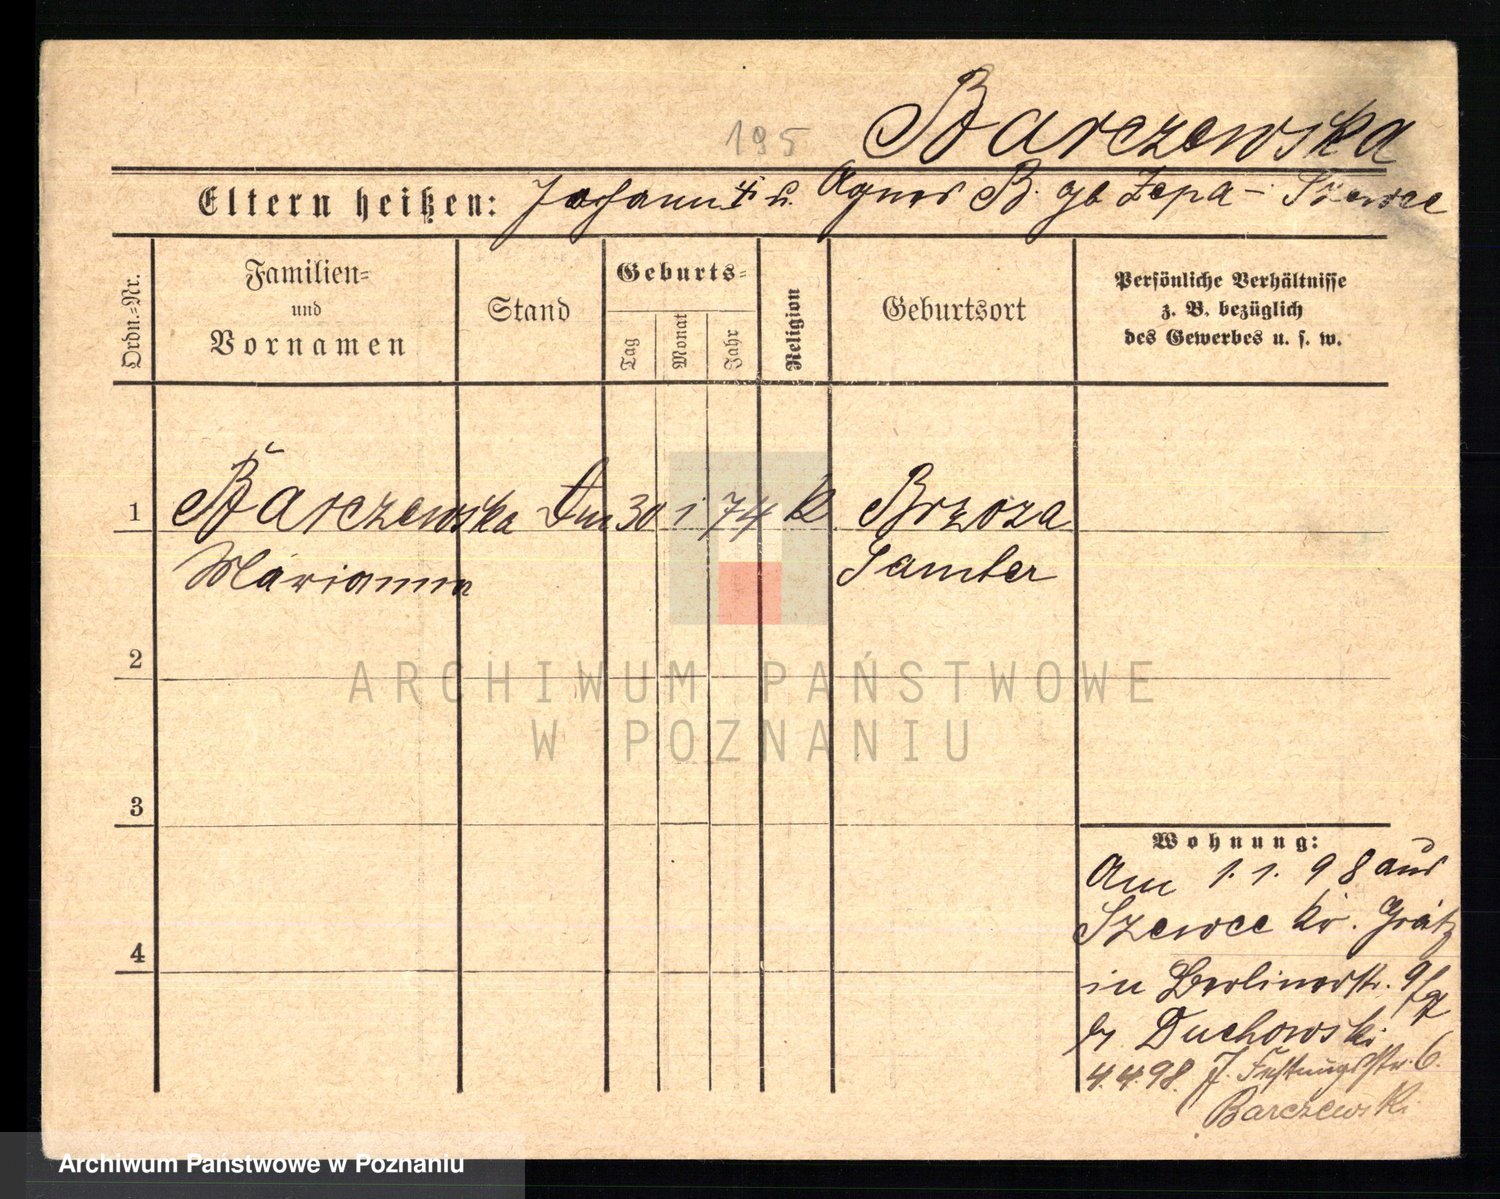 195 Barczewska
Eltern heißen: Johann † u. Agnes B. gb Zepa - Szewce
Ordn.-Nr.
Familien-
und
Vornamen
Stand
Geburts-
Tag
Monat
Jahr
Religion
Geburtsort
Persönliche Verhältnisse
z. B. bezüglich
des Gewerbes u. s. w.
1 Barczewska 30 1 74 K Brzoza
Marianna Samter
2
3
4
Wohnung:
Am 1.1.98 aus
Szewce Kr. Grätz
in Berlinerstr. 9
by Duchowski
4.4.98. J. Festungsstr. 6.
Barczewski
ARCHIWUM PAŃSTWOWE
W POZNANIU
Archiwum Państwowe w Poznaniu